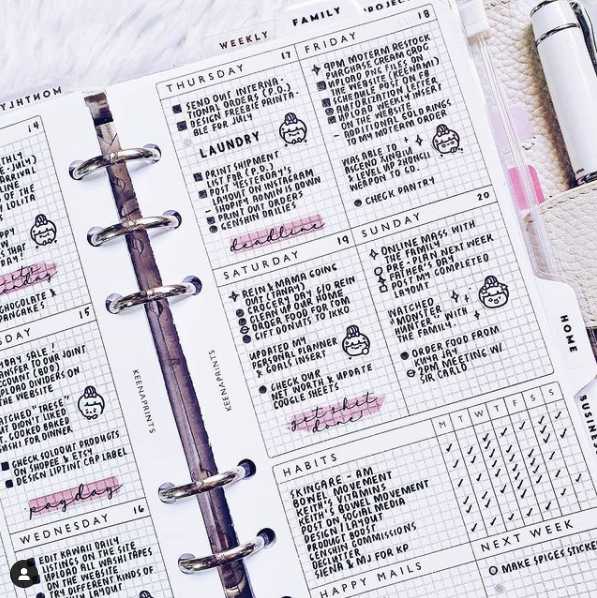 MONTHLY
WEEKLY
FAMILY
PROJEC
14
CHOCOLATE &
PANCAKES
15
SDAY SALE!
OUR JOINT
UPLOAD DIVIDERS ON
THE WEBSITE
WATCHED "TREES"
COOKED BAKED
SUSHI FOR DINNER
CHECK SOLDOUT PRODUCTS
ON SHOPEE & ETSY
DESIGN LIPTINT CAP LABEL
payday
WEDNESDAY 16
EDIT KAWAII DAILY
LISTINGS ON THE SITE
UPLOAD ALL WASHI TAPES
ON THE WEBSITE
TRY DIFFERENT KINDS OF
KEENAPRINTS
KEENAPRINTS
THURSDAY 17
SEND OUT INTERNA-
TIONAL ORDERS (P.O.)
DESIGN FREEBIE PRINTA-
BLE FOR JULY
LAUNDRY
PRINT SHIPMENT
LIST FOR (P.O.)
POST YESTERDAY'S
LAYOUT ON INSTAGRAM
- SHOPIFY ADMIN IS DOWN
PRINT OUT ORDERS
GENSHIN DAILIES
deadline
FRIDAY 18
9PM MDTERM RESTOCK
PURCHASE CREAM CROC
UPLOAD PNG FILES ON
THE WEBSITE (KEENAMI)
SCHEDULE POST ON FB
AUTORIZATION LETTER
UPLOAD WEEKLY INSERT
ON THE WEBSITE
- ADDITIONAL GOLD RINGS
TO MY MDTERM ORDER
WAS ABLE TO
ASCEND XINGQIU
& LEVEL UP ZHONGLI
WEAPON TO 60.
CHECK PANTRY
SATURDAY 19
REIN & MAMA GOING
OUT (TANAY)
GROCERY DAY C/O REIN
CLEAN UP/D HOME
ORDER FOOD FOR TOM
GIFT DONUTS TO IKKO
UPDATED MY
PERSONAL PLANNER
& GOALS INSERT
CHECK OUR
NET WORTH & UPDATE
GOOGLE SHEETS
get shit
done!
SUNDAY 20
ONLINE MASS WITH
THE FAMILY
PRE-PLAN NEXT WEEK
FATHER'S DAY
POST MY COMPLETED
LAYOUT
WATCHED
"MONSTER
HUNTER" WITH
THE FAMILY.
ORDER FOOD FROM
KUYA JAY
2PM MEETING W/
SIR CARLO
HABITS M T W T F S S
SKINCARE - AM
BOWEL MOVEMENT
KEITH'S VITAMINS
KEITH'S BOWEL MOVEMENT
POST ON SOCIAL MEDIA
DESIGN LAYOUT
PRODUCT BOOST
GENSHIN COMMISSIONS
DECLUTTER
SIENA & MJ FOR KP
HAPPY MAILS
NEXT WEEK
MAKE SPICES STICKE
HOME
BUSINES